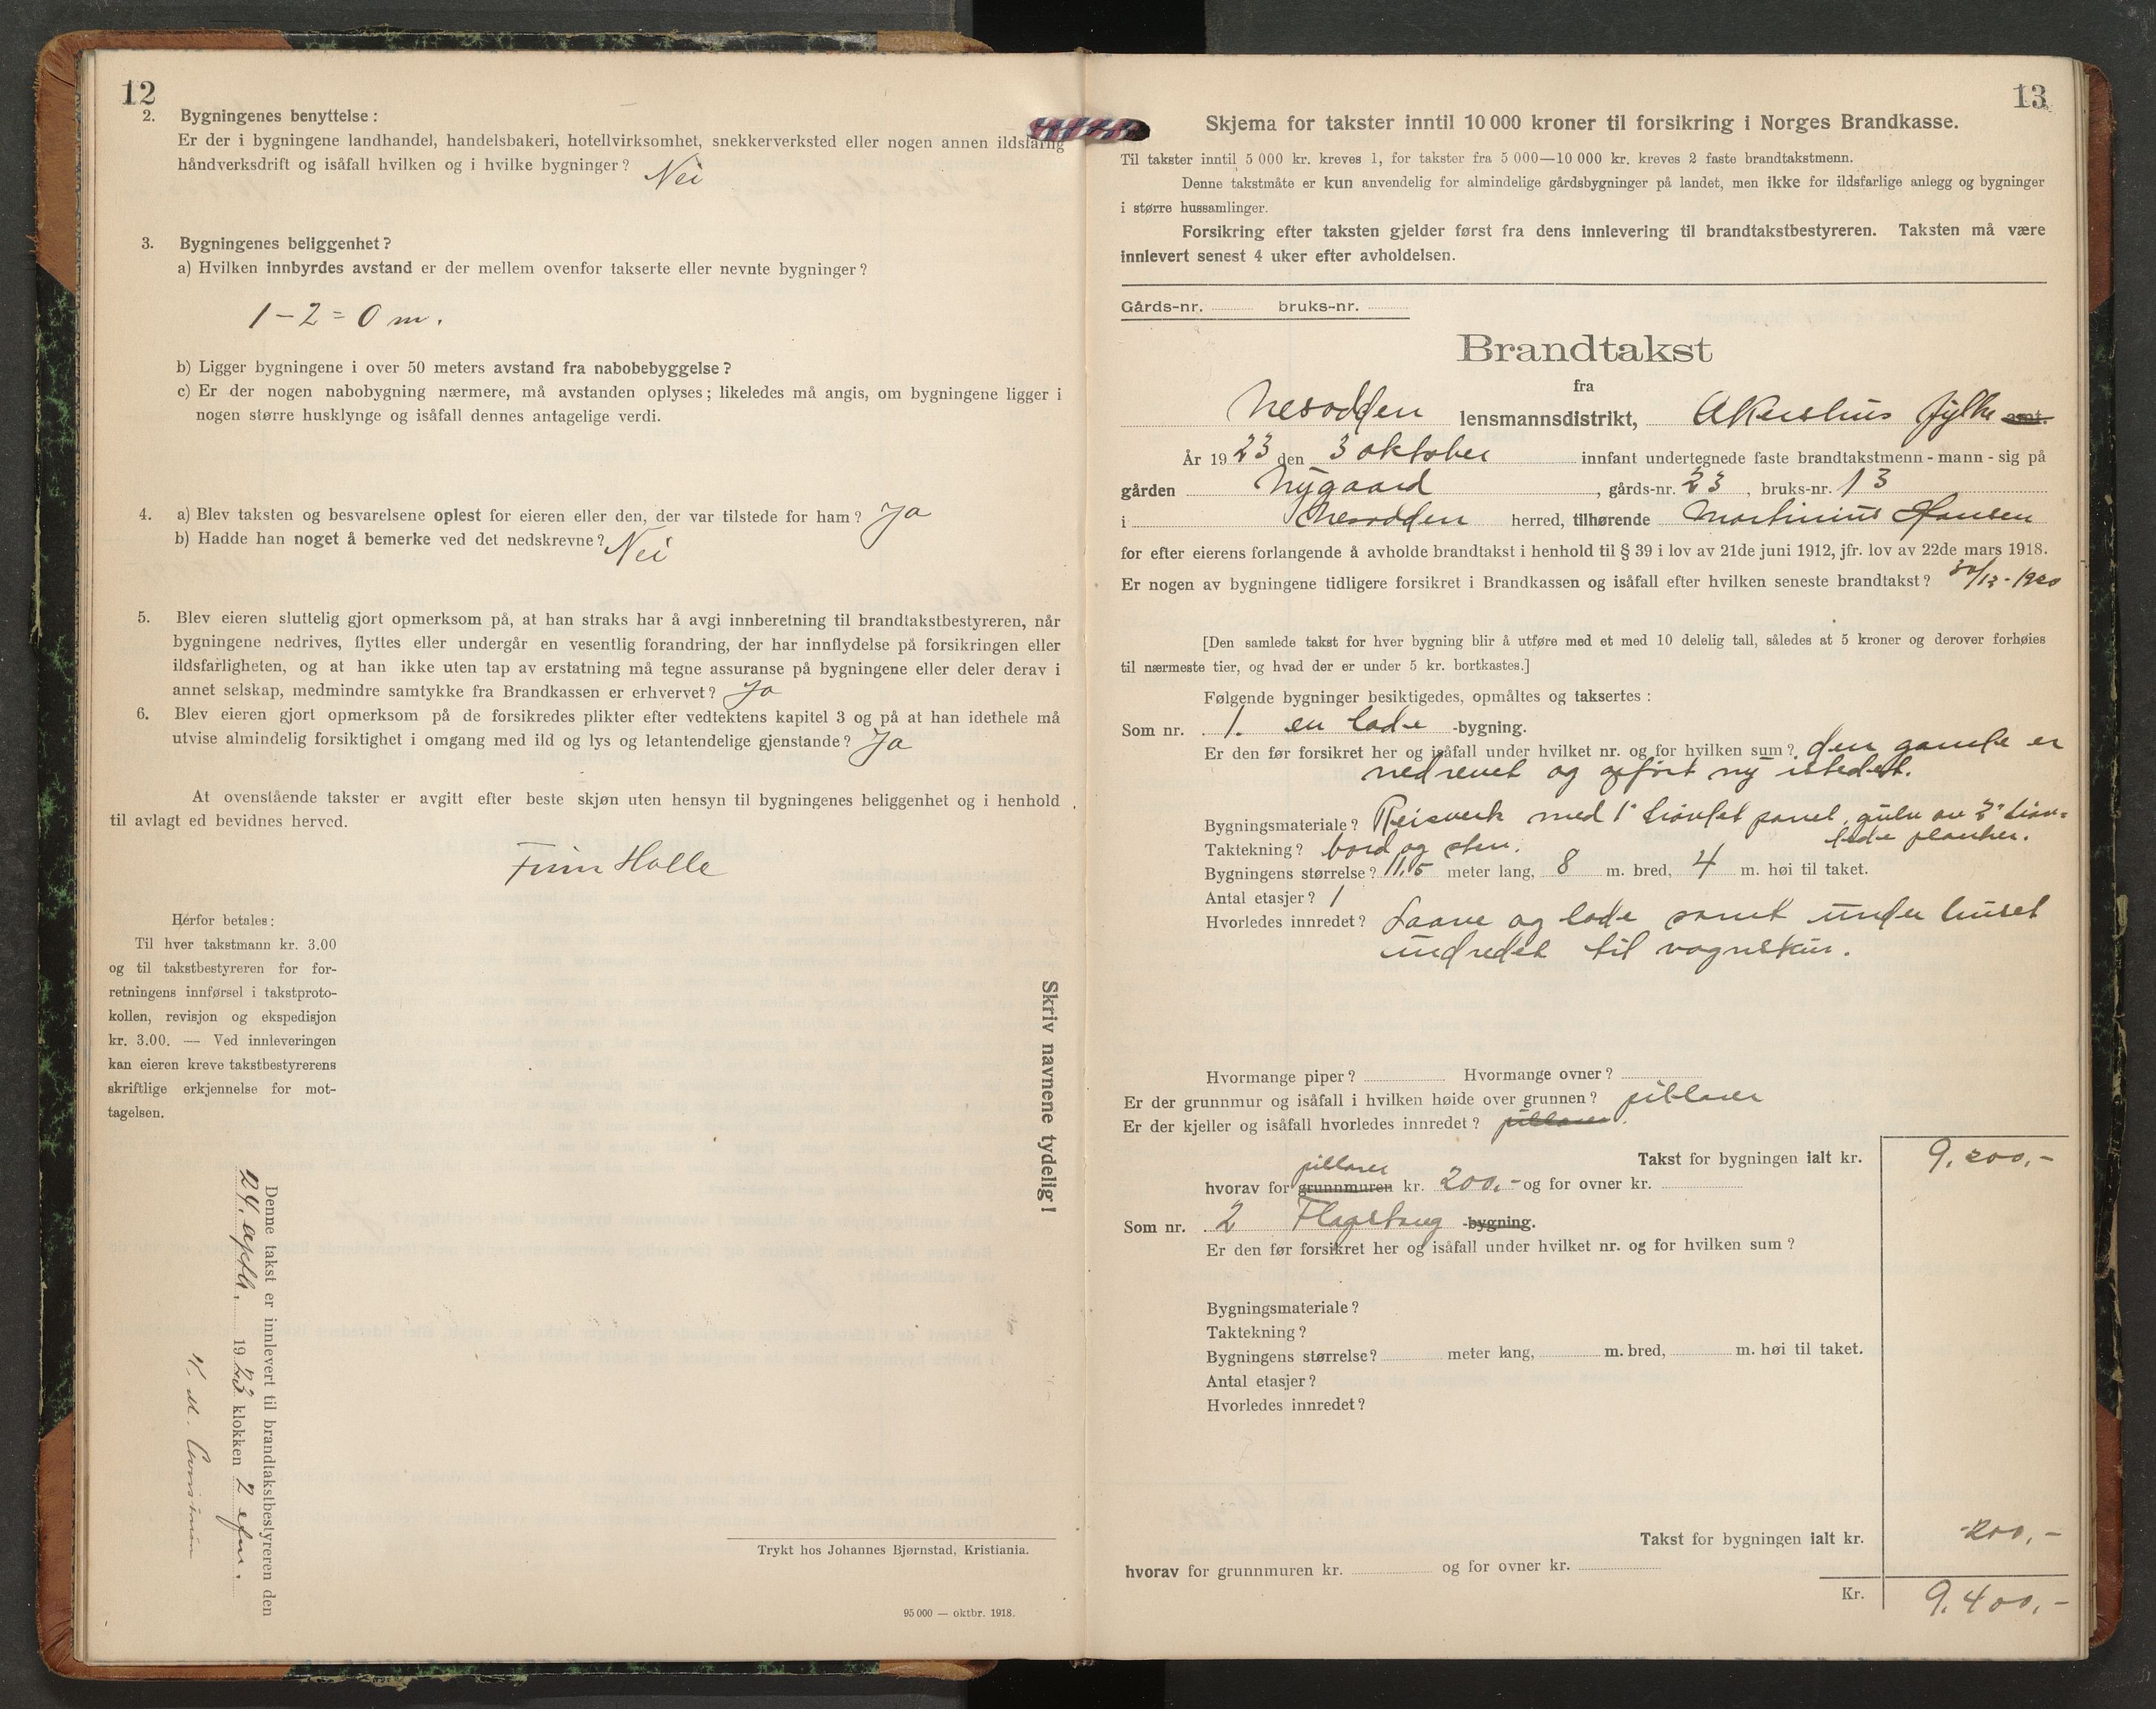 12
2. Bygningenes benyttelse:
Er der i bygningene landhandel, handelsbakeri, hotellvirksomhet, snekkerverksted eller nogen annen ildsfarlig
håndverksdrift og isåfall hvilken og i hvilke bygninger? Nei
3. Bygningenes beliggenhet?
a) Hvilken innbyrdes avstand er der mellem ovenfor takserte eller nevnte bygninger?
1 – 2 = 0 m.
b) Ligger bygningene i over 50 meters avstand fra nabobebyggelse?
c) Er der nogen nabobygning nærmere, må avstanden oplyses; likeledes må angis, om bygningene ligger i
nogen større husklynge og isåfall dennes antagelige verdi.
4. a) Blev taksten og besvarelsene oplest for eieren eller den, der var tilstede for ham? Ja
b) Hadde han noget å bemerke ved det nedskrevne? Nei
5. Blev eieren sluttelig gjort opmerksom på, at han straks har å avgi innberetning til brandtakstbestyreren, når
bygningene nedrives, flyttes eller undergår en vesentlig forandring, der har innflydelse på forsikringen eller
ildsfarligheten, og at han ikke uten tap av erstatning må tegne assuranse på bygningene eller deler derav i
annet selskap, medmindre samtykke fra Brandkassen er erhvervet? Ja
6. Blev eieren gjort opmerksom på de forsikredes plikter efter vedtektens kapitel 3 og på at han idethele må
utvise almindelig forsiktighet i omgang med ild og lys og letantendelige gjenstande? Ja
At ovenstående takster er avgitt efter beste skjøn uten hensyn til bygningenes beliggenhet og i henhold
til avlagt ed bevidnes herved.
Finn Holle
Herfor betales:
Til hver takstmann kr. 3.00
og til takstbestyreren for for-
retningens innførsel i takstproto-
kollen, revisjon og ekspedisjon
kr. 3.00. — Ved innleveringen
kan eieren kreve takstbestyrerens
skriftlige erkjennelse for mot-
tagelsen.
Skriv navnene tydelig!
Denne takst er innlevert til brandtakstbestyreren den
24. 1923 klokken 2 efm.
Trykt hos Johannes Bjørnstad, Kristiania.
95 000 — oktbr. 1918.
13
Skjema for takster inntil 10 000 kroner til forsikring i Norges Brandkasse.
Til takster inntil 5 000 kr. kreves 1, for takster fra 5 000—10 000 kr. kreves 2 faste brandtakstmenn.
Denne takstmåte er kun anvendelig for almindelige gårdsbygninger på landet, men ikke for ildsfarlige anlegg og bygninger
i større hussamlinger.
Forsikring efter taksten gjelder først fra dens innlevering til brandtakstbestyreren. Taksten må være
innlevert senest 4 uker efter avholdelsen.
Gårds-nr. bruks-nr.
Brandtakst
fra
Nesodden lensmannsdistrikt, Akershus fylke amt.
År 1923 den 3 oktober innfant undertegnede faste brandtakstmenn - mann - sig på
gården Nygaard, gårds-nr. 23, bruks-nr. 13
i Nesodden herred, tilhørende Martinius Hansen
for efter eierens forlangende å avholde brandtakst i henhold til § 39 i lov av 21de juni 1912, jfr. lov av 22de mars 1918.
Er nogen av bygningene tidligere forsikret i Brandkassen og isåfall efter hvilken seneste brandtakst? 30/12-1920
[Den samlede takst for hver bygning blir å utføre med et med 10 delelig tall, således at 5 kroner og derover forhøies
til nærmeste tier, og hvad der er under 5 kr. bortkastes.]
Følgende bygninger besiktigedes, opmåltes og taksertes:
Som nr. 1. en lade -bygning.
Er den før forsikret her og isåfall under hvilket nr. og for hvilken sum? den gamle er
nedrevet og opført ny istedet.
Bygningsmateriale? Reisverk med 1" høvlet panel, gulv av 2" høv-
lede planker.
Taktekning? bord og sten.
Bygningens størrelse? 11,5 meter lang, 8 m. bred, 4 m. høi til taket.
Antal etasjer? 1
Hvorledes innredet? Laave og lade samt under huset
indredet til vognskur.
Hvormange piper? Hvormange ovner?
Er der grunnmur og isåfall i hvilken høide over grunnen? pillarer
Er der kjeller og isåfall hvorledes innredet? pillarer.
Takst for bygningen ialt kr. 9.200,-
pillarer
hvorav for grunnmuren kr. 200,- og for ovner kr.
Som nr. 2 Flagstang -bygning.
Er den før forsikret her og isåfall under hvilket nr. og for hvilken sum?
Bygningsmateriale?
Taktekning?
Bygningens størrelse? meter lang, m. bred, m. høi til taket.
Antal etasjer?
Hvorledes innredet?
Takst for bygningen ialt kr. 200,-
hvorav for grunnmuren kr. og for ovner kr.
Kr. 9.400,-